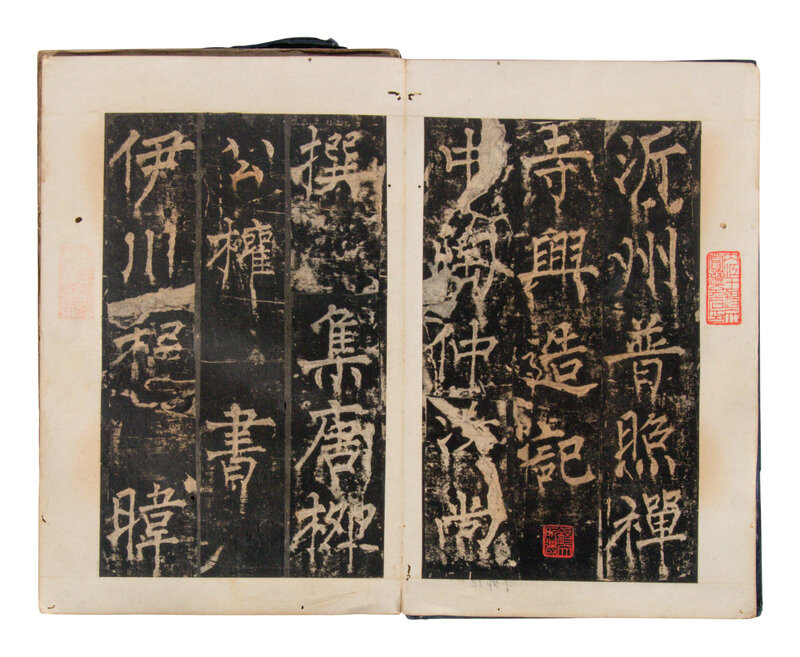 沂州普照禪
寺興造記
中仲汝尚
撰 集唐柳
公權 書
伊川程 暐